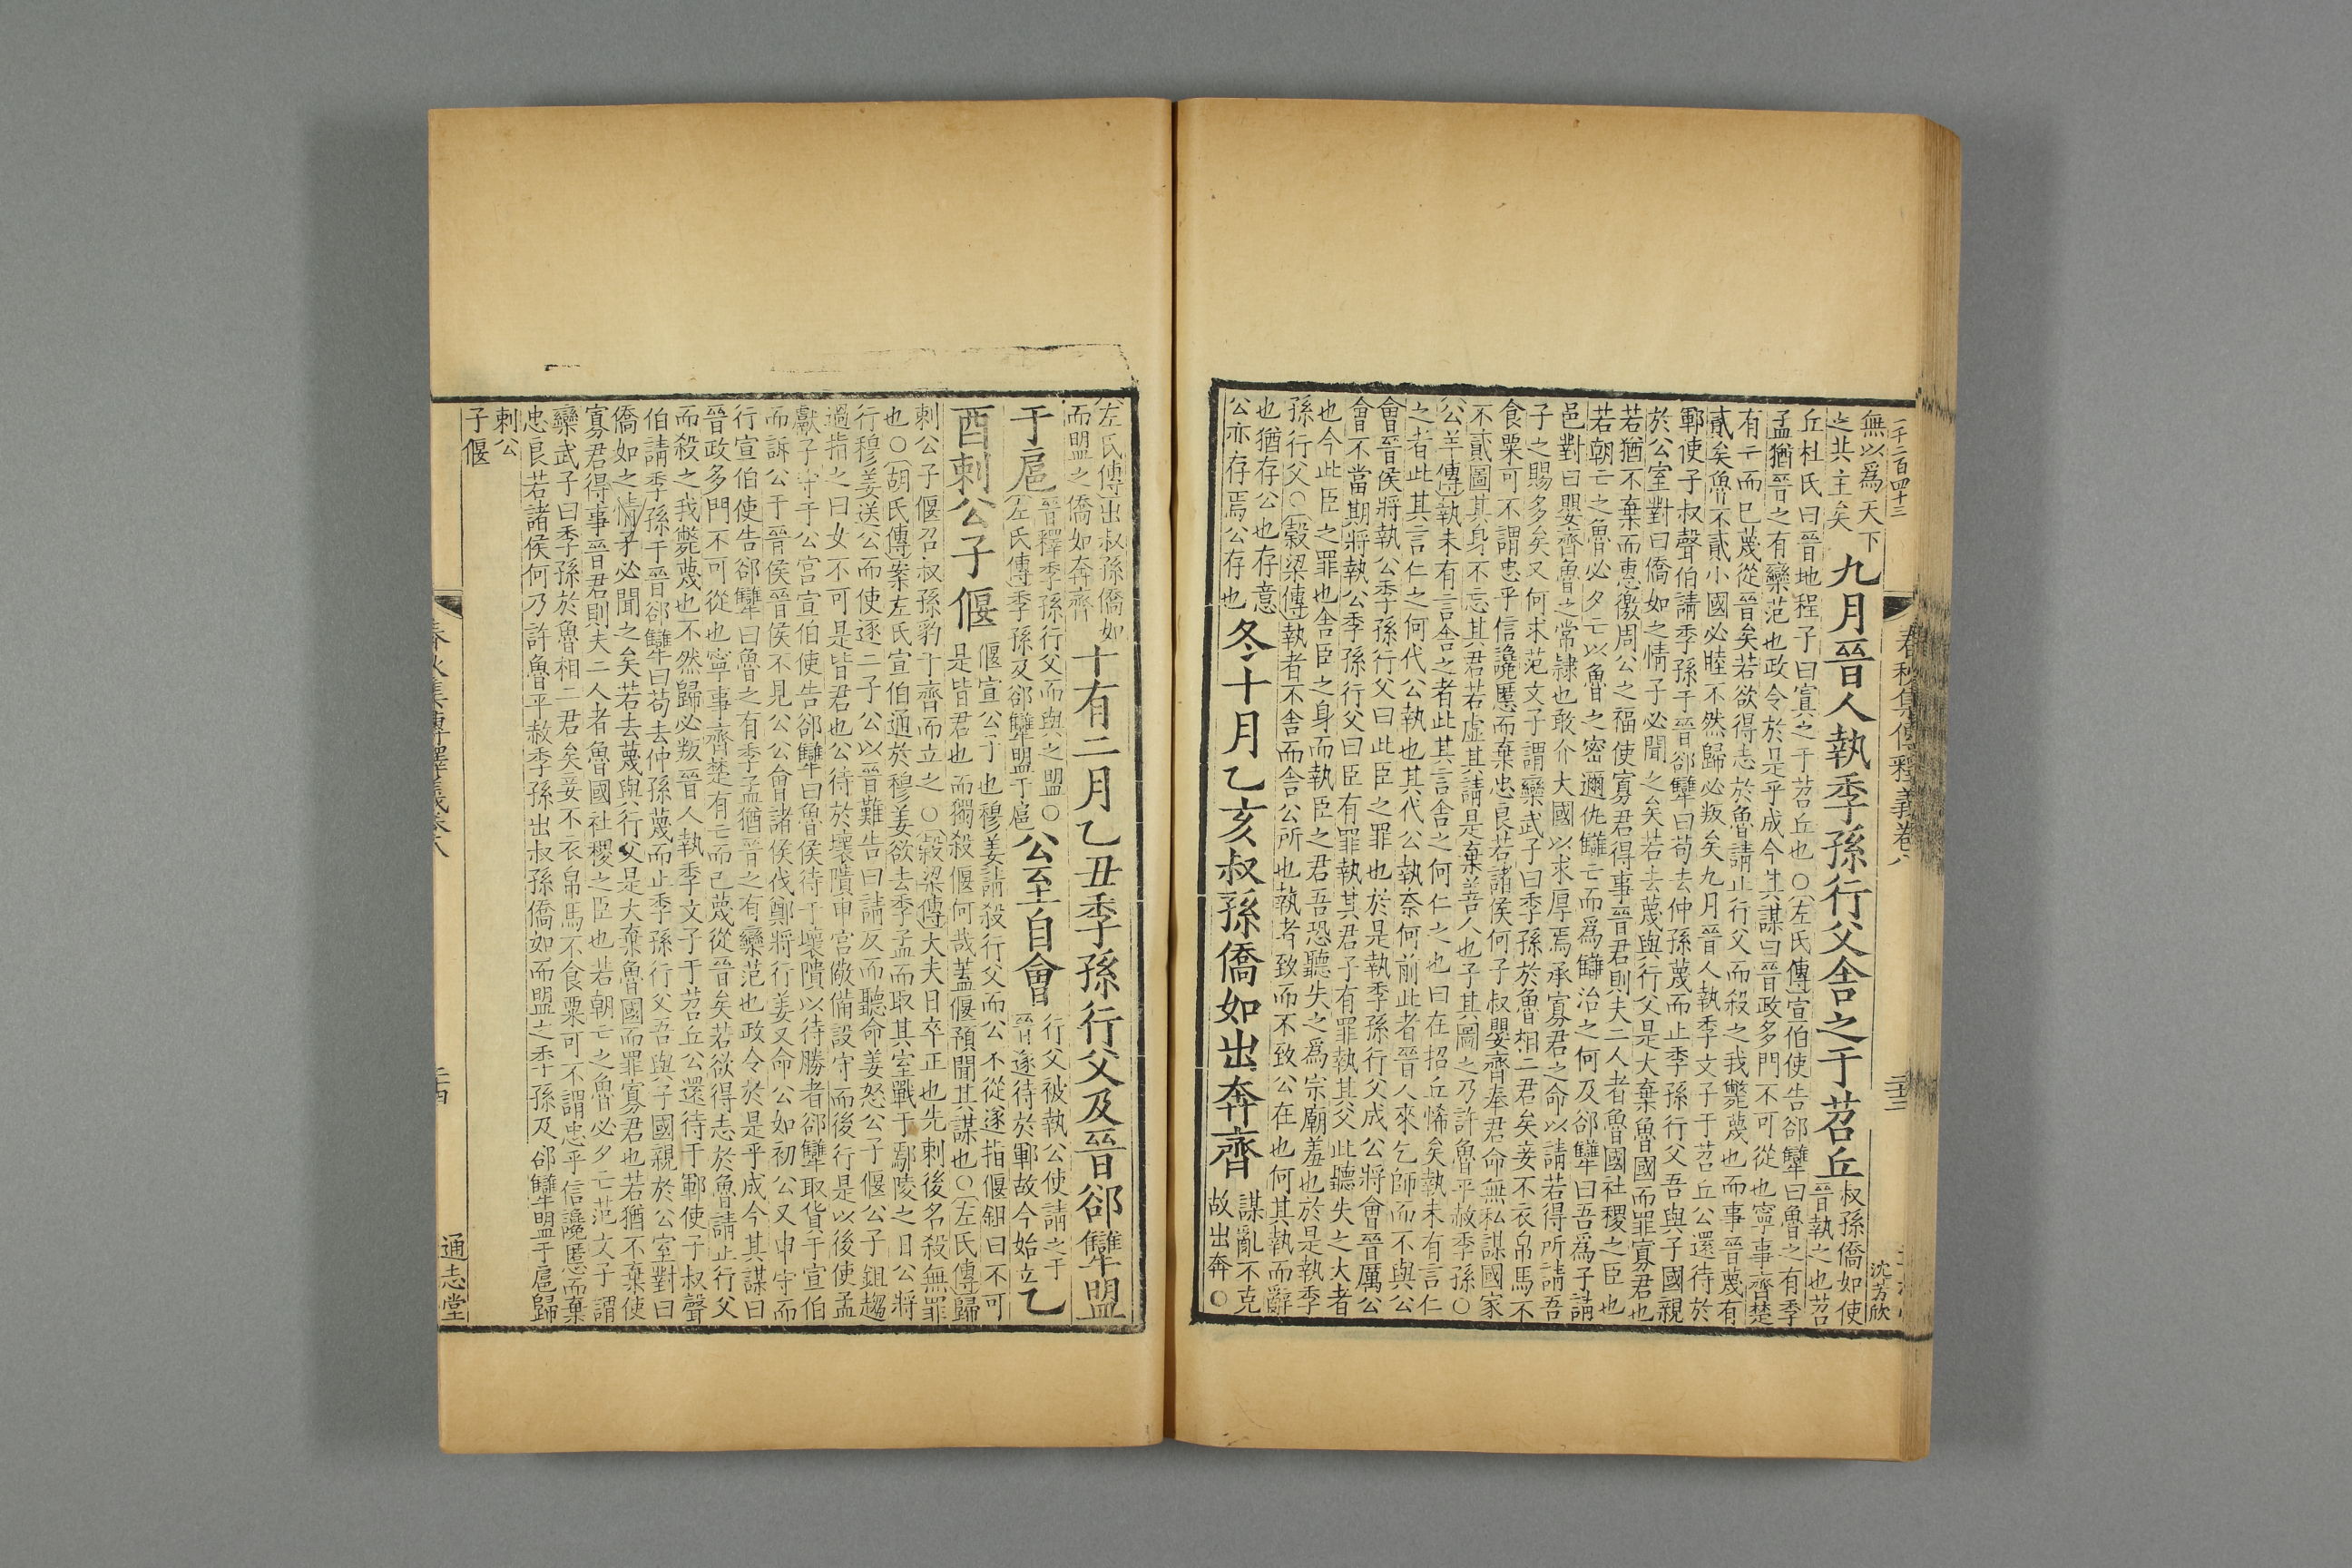 一千二百四十三
春秋集傳釋義卷八
三十三
沈芳欣
無以爲天下
之共主矣
九月晉人執季孫行父舍之于苕丘
叔孫僑如使
晉執之也苕
丘杜氏曰晉地程子曰寘之于苕丘也○左氏傳宣伯使告郤犨曰魯之有季
孟猶晉之有欒范也政令於是乎成今其謀曰晉政多門不可從也寧事齊楚
有亡而已蔑從晉矣若欲得志於魯請止行父而殺之我斃蔑也而事晉蔑有
貳矣魯不貳小國必睦不然歸必叛矣九月晉人執季文子于苕丘公還待於
鄆使子叔聲伯請季孫于晉郤犨曰苟去仲孫蔑而止季孫行父吾與子國親
於公室對曰僑如之情子必聞之矣若去蔑與行父是大棄魯國而罪寡君也
若猶不棄而惠徼周公之福使寡君得事晉君則夫二人者魯國社稷之臣也
若朝亡之魯必夕亡以魯之密邇仇讎亡而爲讎治之何及郤犨曰吾爲子請
邑對曰嬰齊魯之常隸也敢介大國以求厚焉承寡君之命以請若得所請吾
子之賜多矣又何求范文子謂欒武子曰季孫於魯相二君矣妾不衣帛馬不
食粟可不謂忠乎信讒慝而棄忠良若諸侯何子叔嬰齊奉君命無私謀國家
不貳圖其身不忘其君若虛其請是棄善人也子其圖之乃許魯平赦季孫○
公羊傳執未有言舍之者此其言舍之何仁之也曰在招丘悕矣執未有言仁
之者此其言仁之何代公執也其代公執奈何前此者晉人來乞師而不與公
會晉侯將執公季孫行父曰此臣之罪也於是執季孫行父成公將會晉厲公
會不當期將執公季孫行父曰臣有罪執其君子有罪執其父此聽失之大者
也今此臣之罪也舍臣之身而執臣之君吾恐聽失之爲宗廟羞也於是執季
孫行父○穀梁傳執者不舍而舍公所也執者致而不致公在也何其執而辭
也猶存公也存意
公亦存焉公存也
冬十月乙亥叔孫僑如出奔齊
謀亂不克
故出奔○
左氏傳出叔孫僑如
而盟之僑如奔齊
十有二月乙丑季孫行父及晉郤犨盟
于扈
晉釋季孫行父而與之盟○
左氏傳季孫及郤犨盟于扈
公至自會
行父被執公使請之于
晉遂待於鄆故今始立
乙
酉刺公子偃
偃宣公子也穆姜請殺行父而公不從遂指偃鉏曰不可
是皆君也而獨殺偃何哉蓋偃預聞其謀也○左氏傳歸
刺公子偃召叔孫豹于齊而立之○穀梁傳大夫日卒正也先刺後名殺無罪
也○胡氏傳案左氏宣伯通於穆姜欲去季孟而取其室戰于鄢陵之日公將
行穆姜送公而使逐二子公以晉難告曰請反而聽命姜怒公子偃公子鉏趨
過指之曰女不可是皆君也公待於壞隤申宮儆備設守而後行是以後使孟
獻子守于公宮宣伯使告郤犨曰魯侯待于壞隤以待勝者郤犨取貨于宣伯
而訴公于晉侯晉侯不見公公會諸侯伐鄭將行姜又命公如初公又申守而
行宣伯使告郤犨曰魯之有季孟猶晉之有欒范也政令於是乎成今其謀曰
晉政多門不可從也寧事齊楚有亡而已蔑從晉矣若欲得志於魯請止行父
而殺之我斃蔑也不然歸必叛晉人執季文子于苕丘公還待于鄆使子叔聲
伯請季孫于晉郤犨曰苟去仲孫蔑而止季孫行父吾與子國親於公室對曰
僑如之情子必聞之矣若去蔑與行父是大棄魯國而罪寡君也若猶不棄使
寡君得事晉君則夫二人者魯國社稷之臣也若朝亡之魯必夕亡范文子謂
欒武子曰季孫於魯相二君矣妾不衣帛馬不食粟可不謂忠乎信讒慝而棄
忠良若諸侯何乃許魯平赦季孫出叔孫僑如而盟之季孫及郤犨盟于扈歸
刺公
子偃
春秋集傳釋義卷八
三十四
通志堂